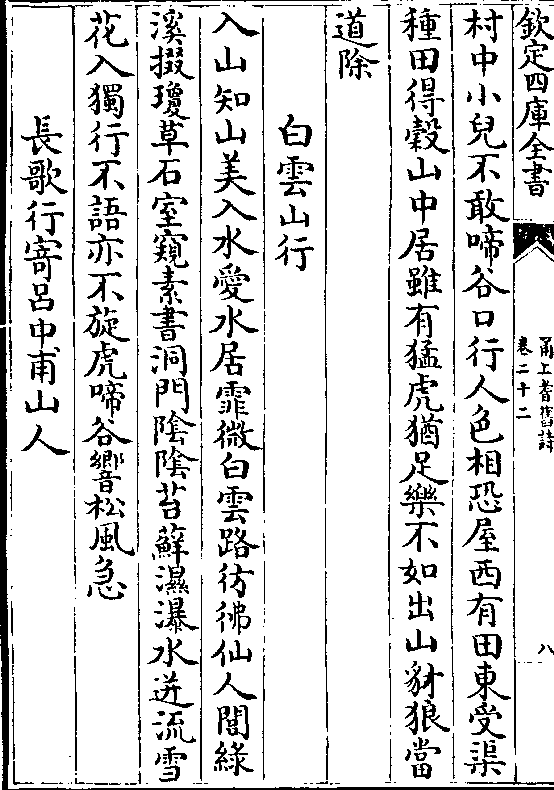 欽定四庫全書
甬上耆舊詩
卷二十二
八
村中小兒不敢啼谷口行人色相恐屋西有田東受渠
種田得穀山中居雖有猛虎猶足樂不如出山豺狼當
道除
白雲山行
入山知山美入水愛水居霏微白雲路彷彿仙人閭綠
溪掇瓊草石室窺素書洞門陰陰苔蘚濕瀑水迸流雪
花入獨行不語亦不旋虎啼谷響松風急
長歌行寄呂中甫山人